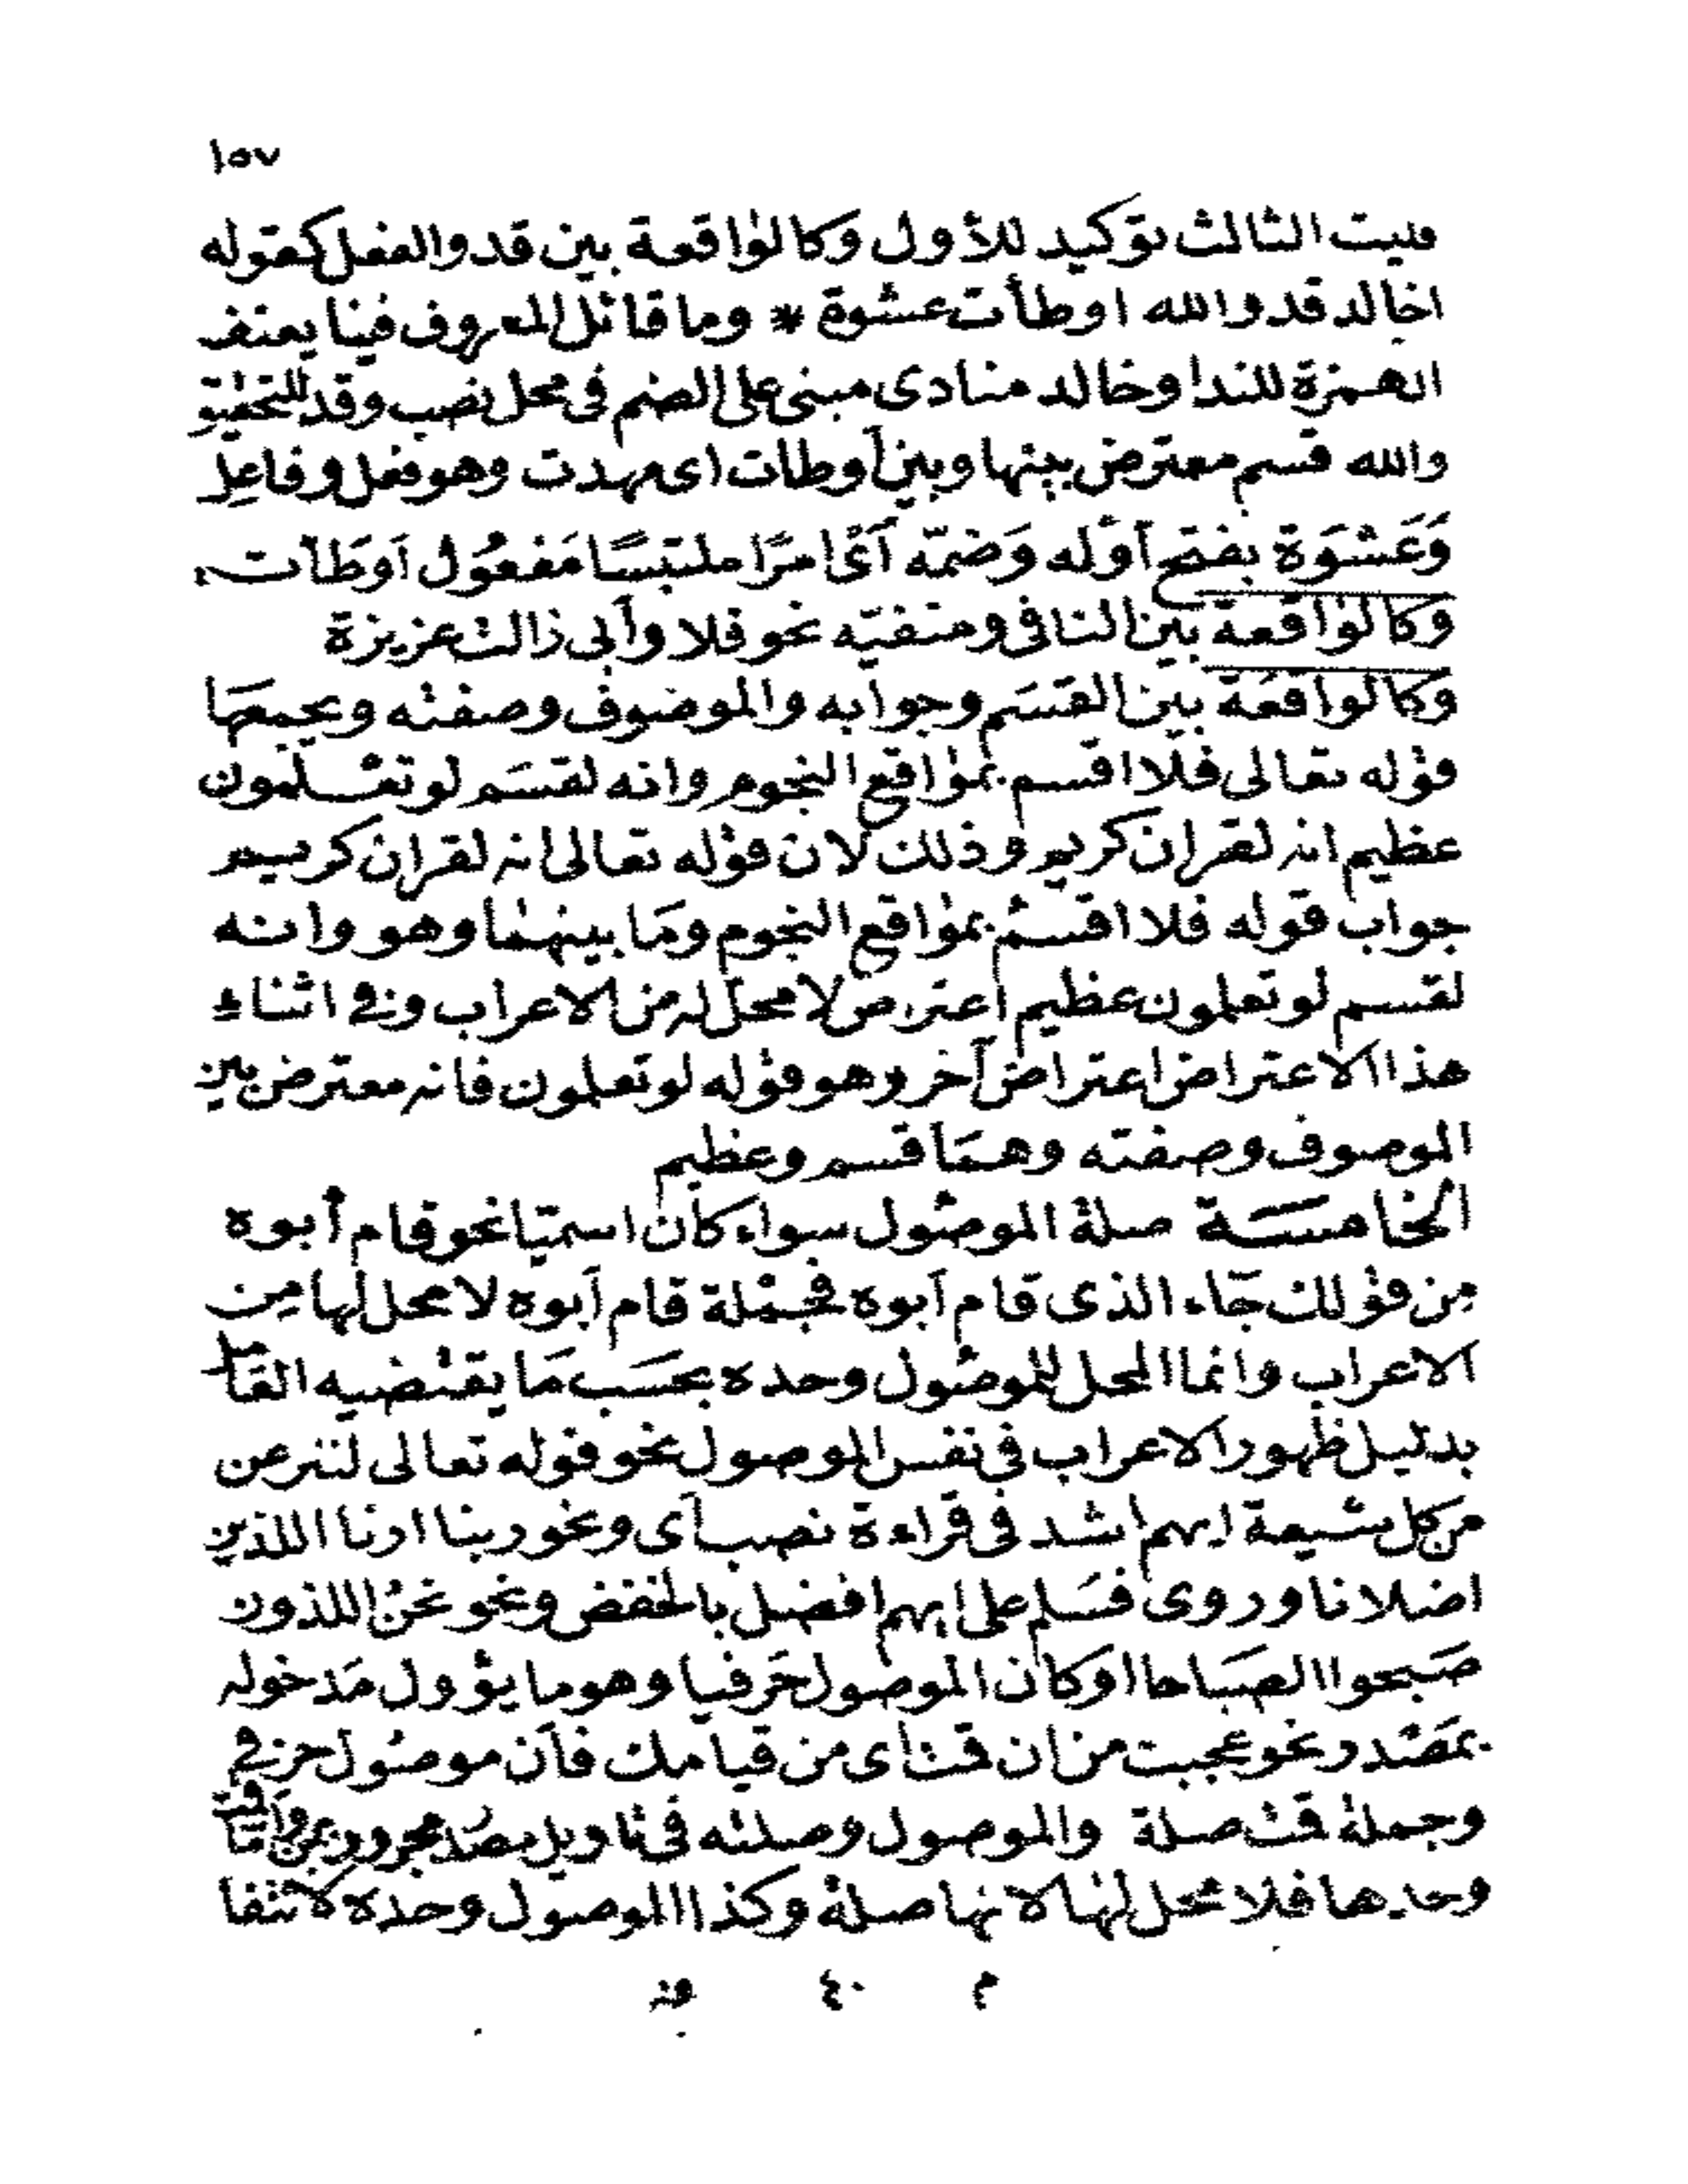 ١٥٧
فليت الثالث توكيد للأول وكالواقعة بين قد والفعل كقوله
اخالد قد والله اوطأت عشوة * وما قائل المعروف فينا يعنف
الهمزة للندا وخالد منادى مبنى على الضم فى محل نصب وقد للتحقيق
والله قسم معترض بينها وبين أوطات اى مهدت وهو فعل وفاعل
وَعَشوَة بفتح أوّله وَضمّه أىْ امرًا ملتبسًا مَفعُول أوطَأت
وكالواقعة بين النافى ومنفيّه نحو فلا وأبى ذالك عزيزة
وكالواقعَة بين القسَم وجوابه والموصوف وصفته ويجمعهَا
قوله تعالى فلا اقسم بمواقع النجوم وانه لقسَم لو تعْلمون
عظيم انه لقران كريم وذلك لان قوله تعالى انه لقران كريم
جواب قوله فلا اقسمُ بمواقع النجوم ومَا بينهما وهو وانه
لقسم لو تعلمون عظيم اعتراض لا محلّ له من الاعراب وفى اثناء
هذا الاعتراض اعتراض آخر وهو قوله لو تعلمون فانه معترض بين
الموصوف وصفته وهمَا قسم وعظيم
الخامسَة صلة الموصُول سواء كان اسميّا نحو قام أبوه
مِن قولك جَاء الذى قام أبوه فجملة قام أبوه لا محل لها مِن
الاعراب وانما المحل للموصُول وحده بحسَب مَا يقتضيه العَامل
بدليل ظهور الاعراب فى نفس الموصول نحو قوله تعالى لننزعن
من كل شيعة ايهم اشد فى قراءة نصب أى ونحو ربنا ارنا اللذين
اضلانا وروى فسَلم على ايهم افضل بالخفض ونحو نحنُ اللذون
صَبحوا الصبَاحا او كان الموصول حَرفيا وهو ما يؤول مَدخوله
بمَصْدر نحو عجبت من ان قمت اى من قيامك فأن موصُول حرفى
وجملة قمت صلة والموصول وصلته فى تاويل مصْدر مجرور بمن وأمّا قمت
وحدها فلا محل لها لانها صلة وكذا الموصول وحده لانتفا
م ٤٠ فه